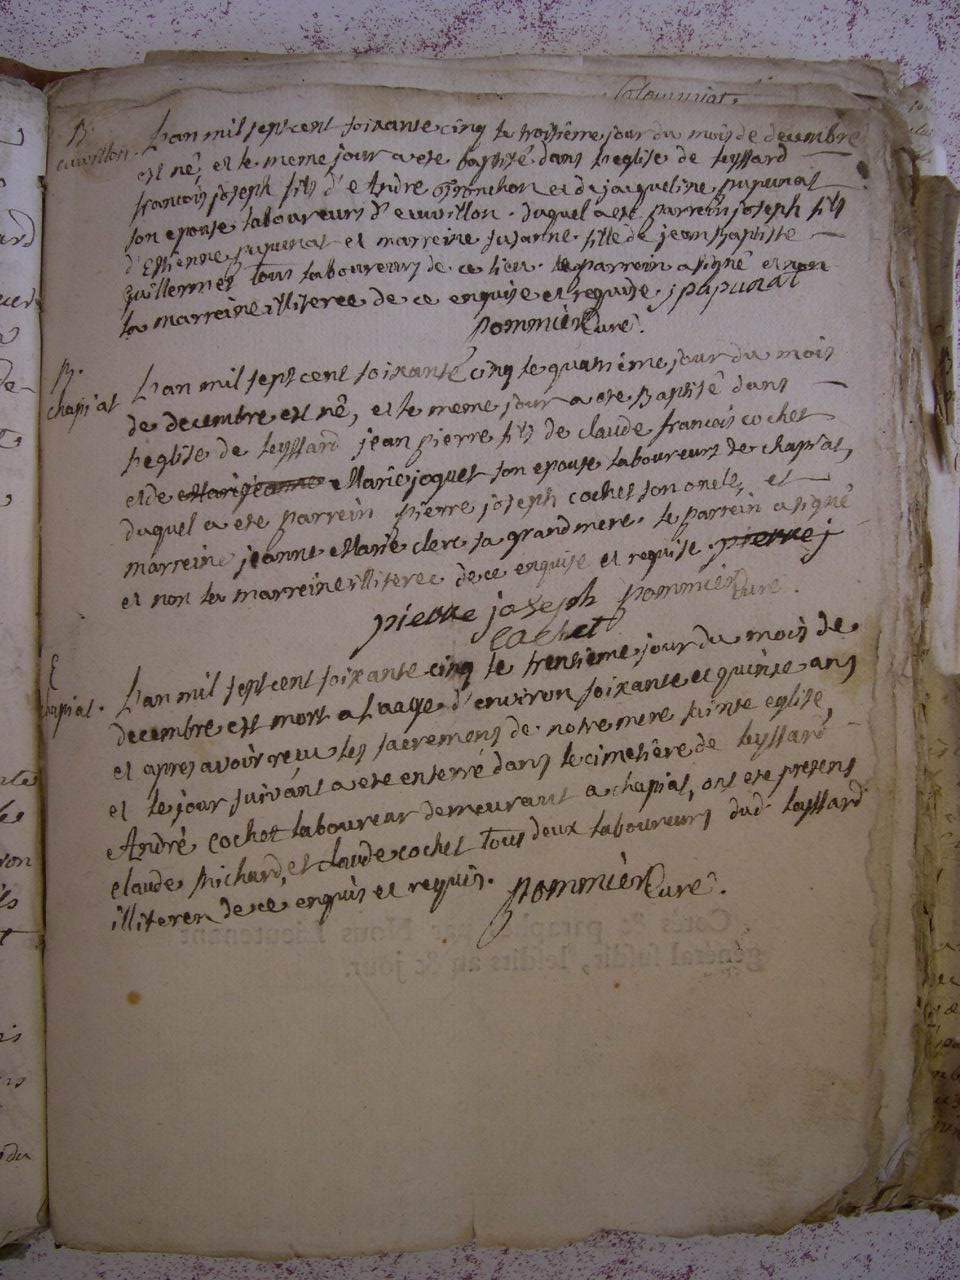 B.
euvillon.
L'an mil sept cent soixante cinq le troisième jour du mois de decembre
est né, et le meme jour a eté baptisé dans l'eglise de leyssard
francois joseph fils d'Andre Tronchon et de jacqueline pupunat
son epouse laboureurs d'euvillon. duquel a eté parrein joseph fils
d'Estienne pupunat et marreine susanne fille de jean Baptiste
guillermet tous laboureurs de ce lieu. le parrein a signé et non
la marreine illiteree de ce enquise et requise. j pupunat
pommièr Curé.
B.
chapiat
L'an mil sept cent soixante cinq le quatrième jour du mois
de decembre est né, et le meme jour a eté Baptisé dans
l'eglise de leyssard jean pierre fils de claude francois cochet
et de Marie jeanne Marie joquet son epouse laboureurs de chapiat,
duquel a eté parrein pierre joseph cochet son oncle, et
marreine jeanne Marie clerc sa grand mere. le parrein a signé
et non la marreine illiteree de ce enquise et requise. pierre j
pierre joseph pommièr Curé.
cochet
E
chapiat.
L'an mil sept cent soixante cinq le trentième jour du mois de
decembre est mort a l'aage d'environ soixante et quinse ans
et apres avoir reçu les sacremens de notre mere sainte eglise,
et le jour suivant a eté enterré dans le cimetière de leyssard
André Cochet laboureur demeurant a chapiat, ont eté presens
claude Michard, et claude cochet tous deux laboureurs dud. leyssard
illiteren de ce enquis et requis. pommièr Curé.
Cotés & paraphés par Nous Lieutenant
général susdit, lesdits an & jour.